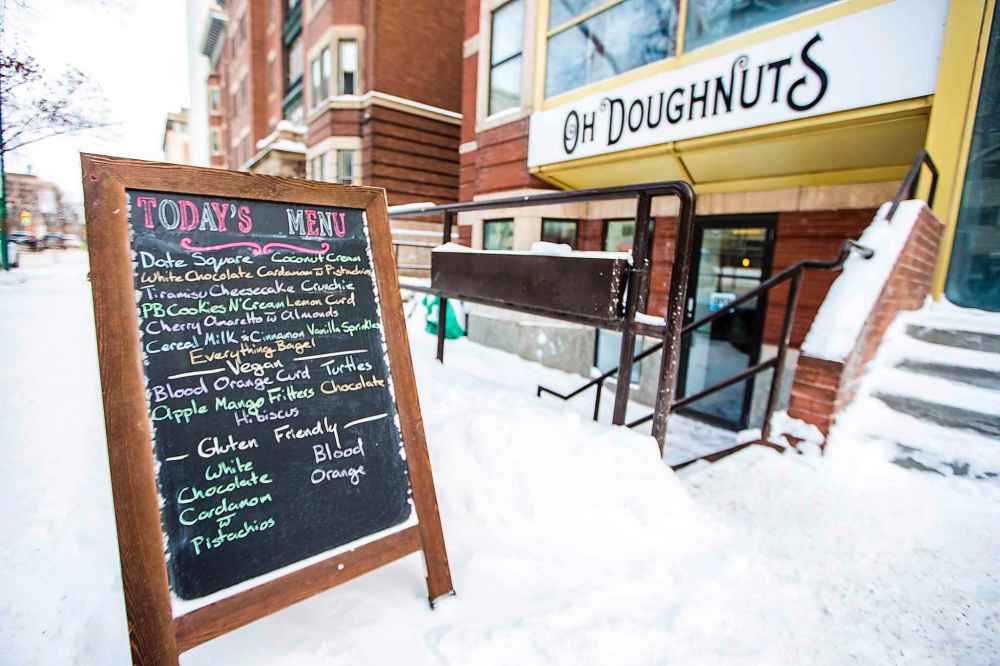 Oh Doughnuts
TODAY'S MENU
Date Square Coconut Cream
White Chocolate Cardamom w Pistachios
Tiramisu Cheesecake Crunchie
PB Cookies N' Cream Lemon Curd
Cherry Amaretto w Almonds
Cereal Milk Cinnamon Vanilla Sprinkles
Everything Bagel
Vegan
Blood Orange Curd Turtles
Apple Mango Fritters Chocolate
Hibiscus
Gluten Friendly
White Blood
Chocolate Orange
Cardamom
w
Pistachios